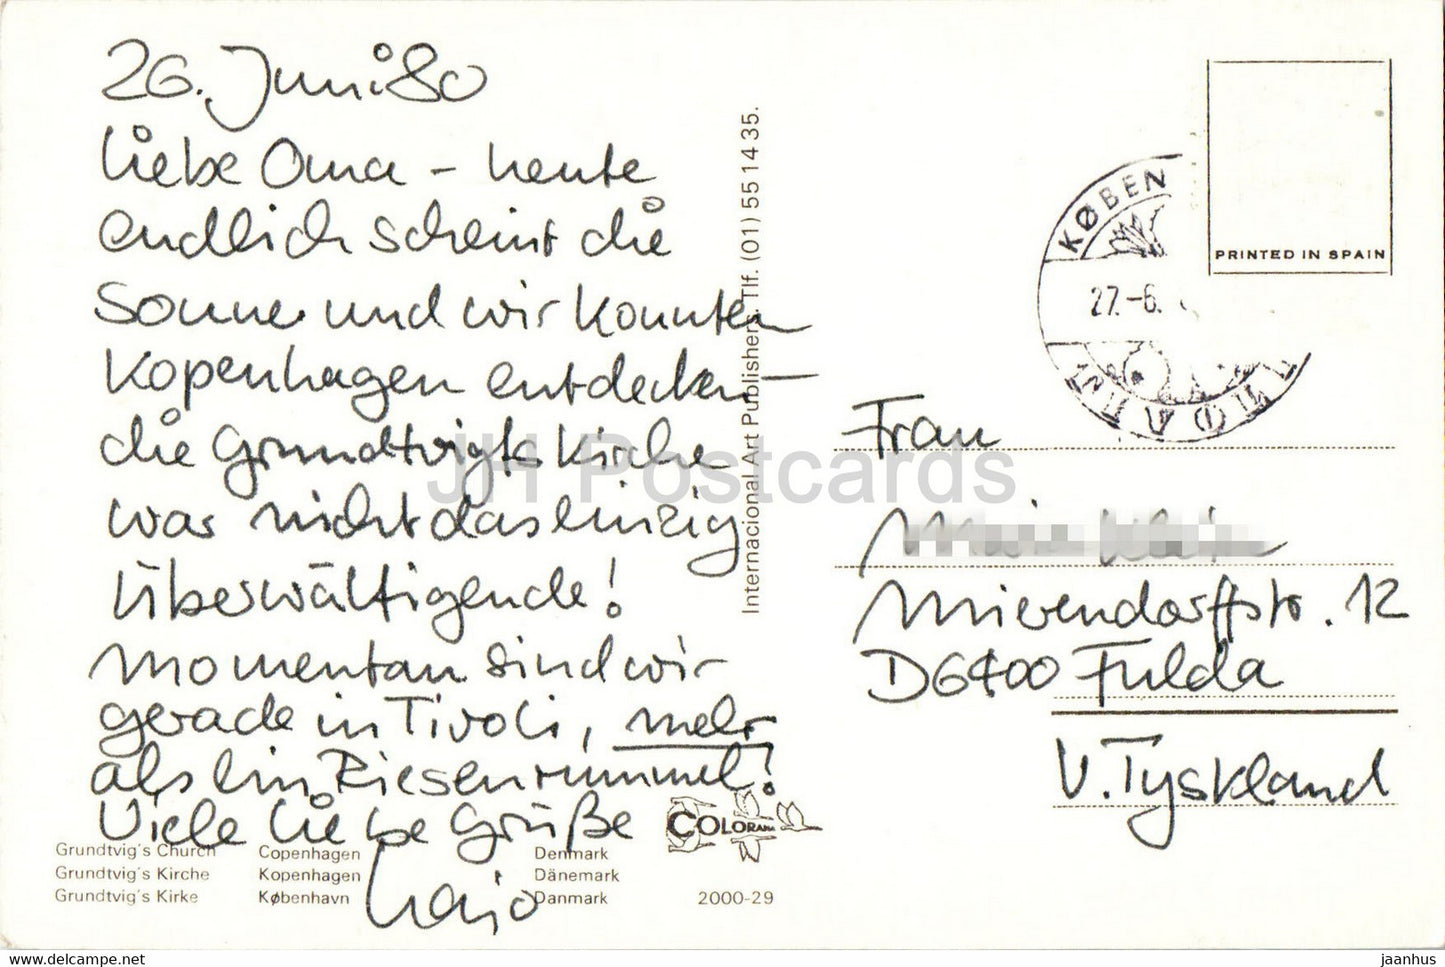 26. Juni 80
Liebe Oma - heute
endlich scheint die
Sonne und wir konnten
Kopenhagen entdecken -
die Grundtvigts Kirche
war nicht das einzig
Überwältigende!
Momentan sind wir
gerade in Tivoli, mehr
als ein Riesenrummel!
Viele liebe Grüße
Grundtvig's Church Copenhagen Denmark
Grundtvig's Kirche Kopenhagen Dänemark
Grundtvig's Kirke København Danmark
2000-29
COLORAMA
Internacional Art Publishers. Tlf. (01) 55 14 35.
PRINTED IN SPAIN
KØBEN
27.-6.
Frau
Mierendorffstr. 12
D6400 Fulda
V. Tyskland
JH Postcards
www.hippostcard.com
jaanhus